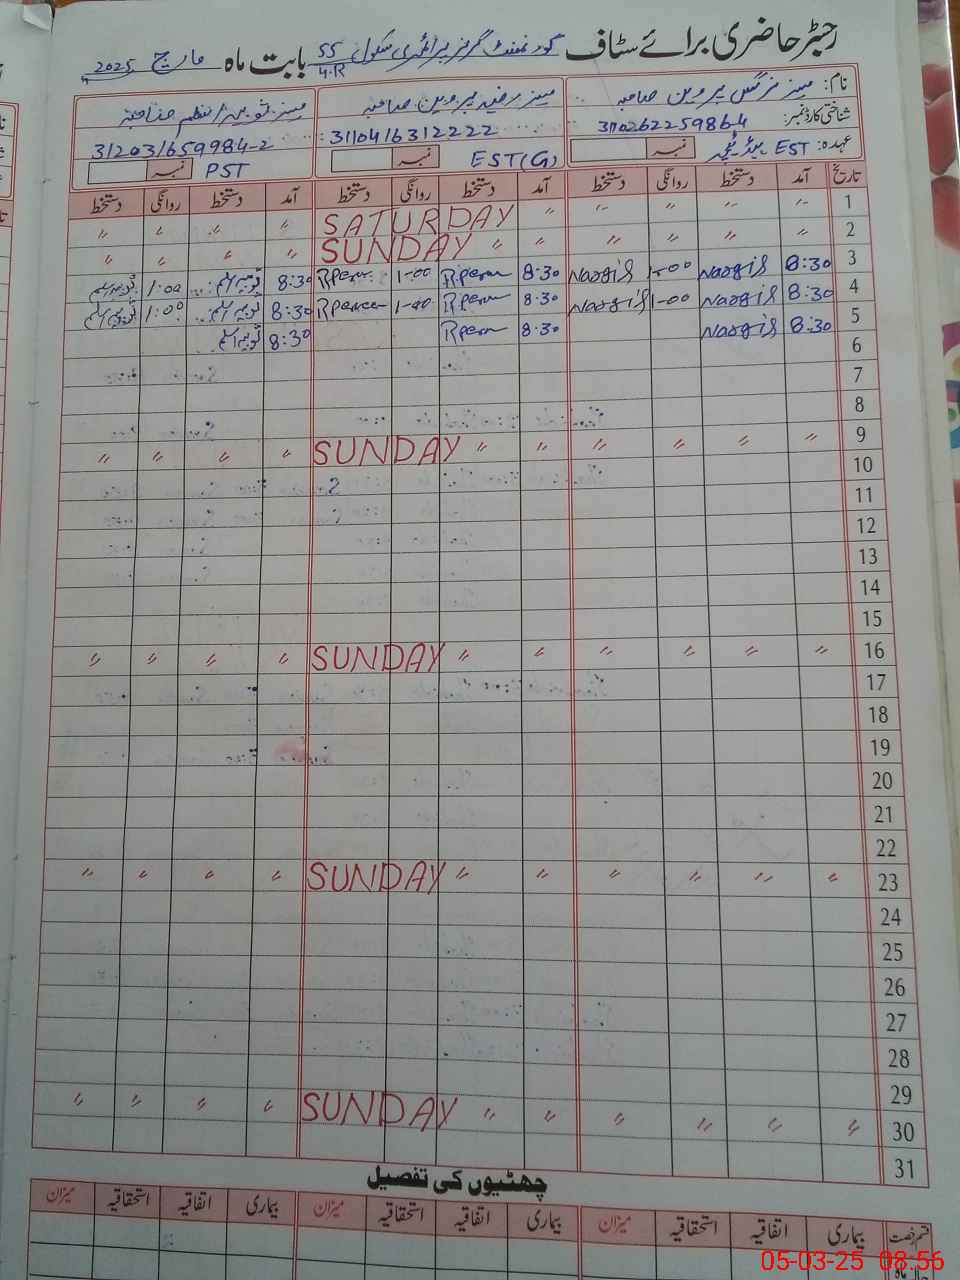 رجسٹر حاضری برائے سٹاف گورنمنٹ گرلز پرائمری سکول 55/4.R بابت ماہ مارچ 2025
نام: مسز نرگس پروین صاحبہ
شناختی کارڈ نمبر: 3110262259864
عہدہ: EST ہیڈ ٹیچر نمبر
مسز رفیہ پروین صاحبہ
3110416312222
EST(G) نمبر
مسز ثوبیہ اسلم صاحبہ
312031659984-2
PST نمبر
تاریخ آمد دستخط روانگی دستخط آمد دستخط روانگی دستخط آمد دستخط روانگی دستخط
1 〃 〃 〃 〃 〃 SATURDAY 〃 〃 〃 〃
2 〃 〃 〃 〃 〃 〃 SUNDAY 〃 〃 〃 〃
3 8:30 Nargis 1-00 Nargis 8:30 Rperu 1-00 Rperu 8:30 ثوبیہ اسلم 1:00 ثوبیہ اسلم
4 8:30 Nargis 1-00 Nargis 8:30 Rperu 1-00 8:30 ثوبیہ اسلم 1:00 ثوبیہ اسلم
5 8:30 Nargis 8:30 Rperu 8:30 ثوبیہ اسلم
6
7
8
9 〃 〃 〃 〃 〃 〃 SUNDAY 〃 〃 〃 〃
10
11
12
13
14
15
16 〃 〃 〃 〃 〃 〃 SUNDAY 〃 〃 〃 〃
17
18
19
20
21
22
23 〃 〃 〃 〃 〃 〃 SUNDAY 〃 〃 〃 〃
24
25
26
27
28
29
30 〃 〃 〃 〃 〃 〃 SUNDAY 〃 〃 〃 〃
31
چھٹیوں کی تفصیل
قسم رخصت بیماری اتفاقیہ استحقاقیہ میزان بیماری اتفاقیہ استحقاقیہ میزان بیماری اتفاقیہ استحقاقیہ میزان
05-03-25 08:56